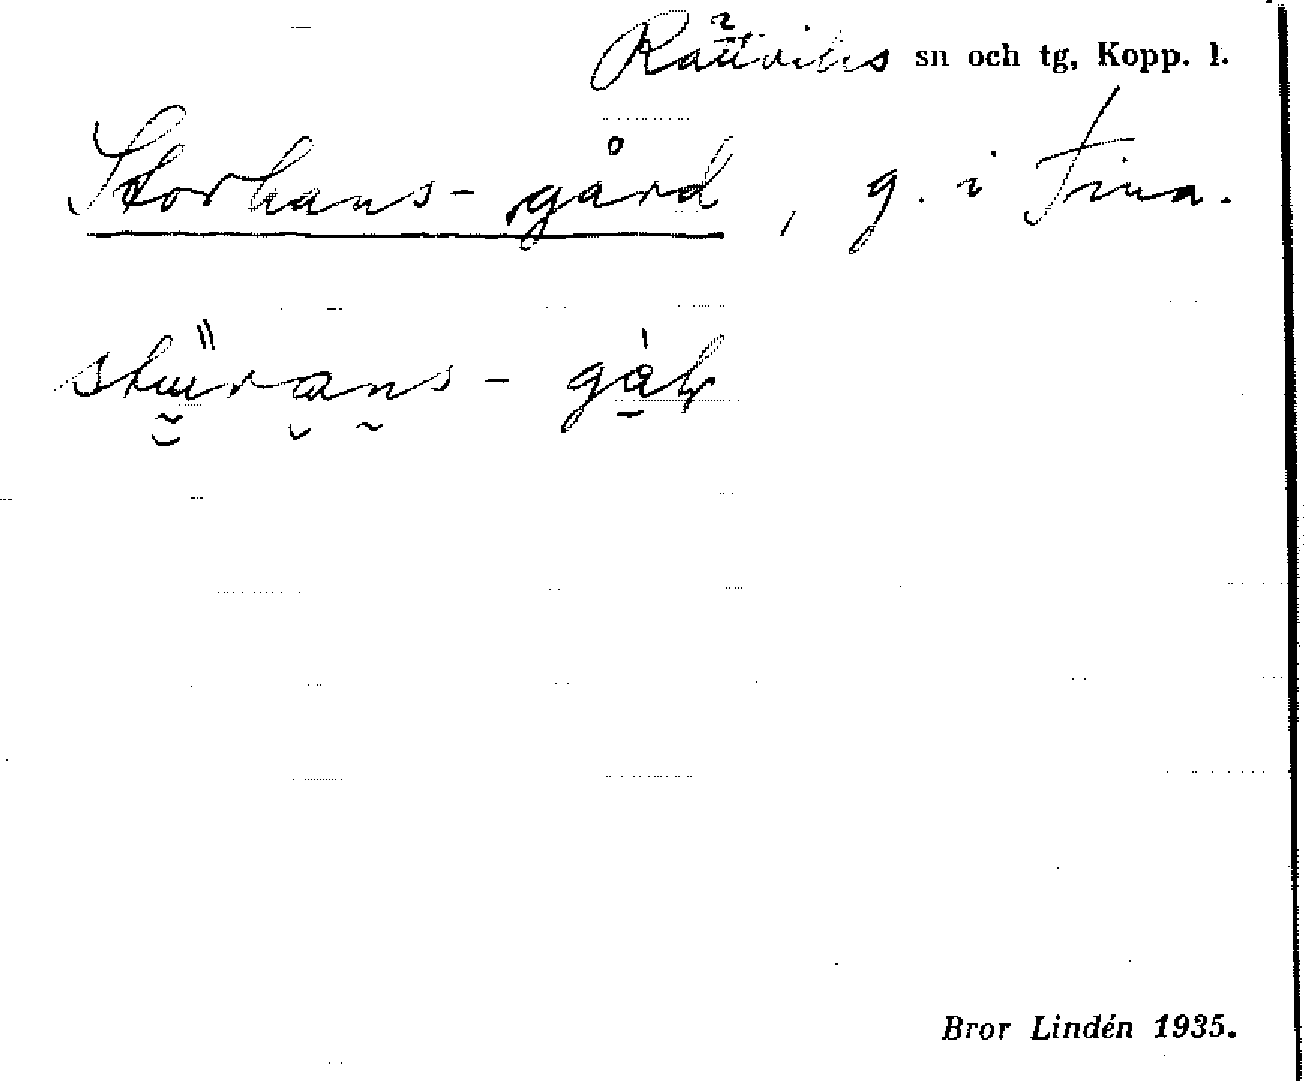 Rättviks sn och tg, Kopp. l.
Storhans-gård, g. i Fina.
stürans-
Bror Lindén 1935.